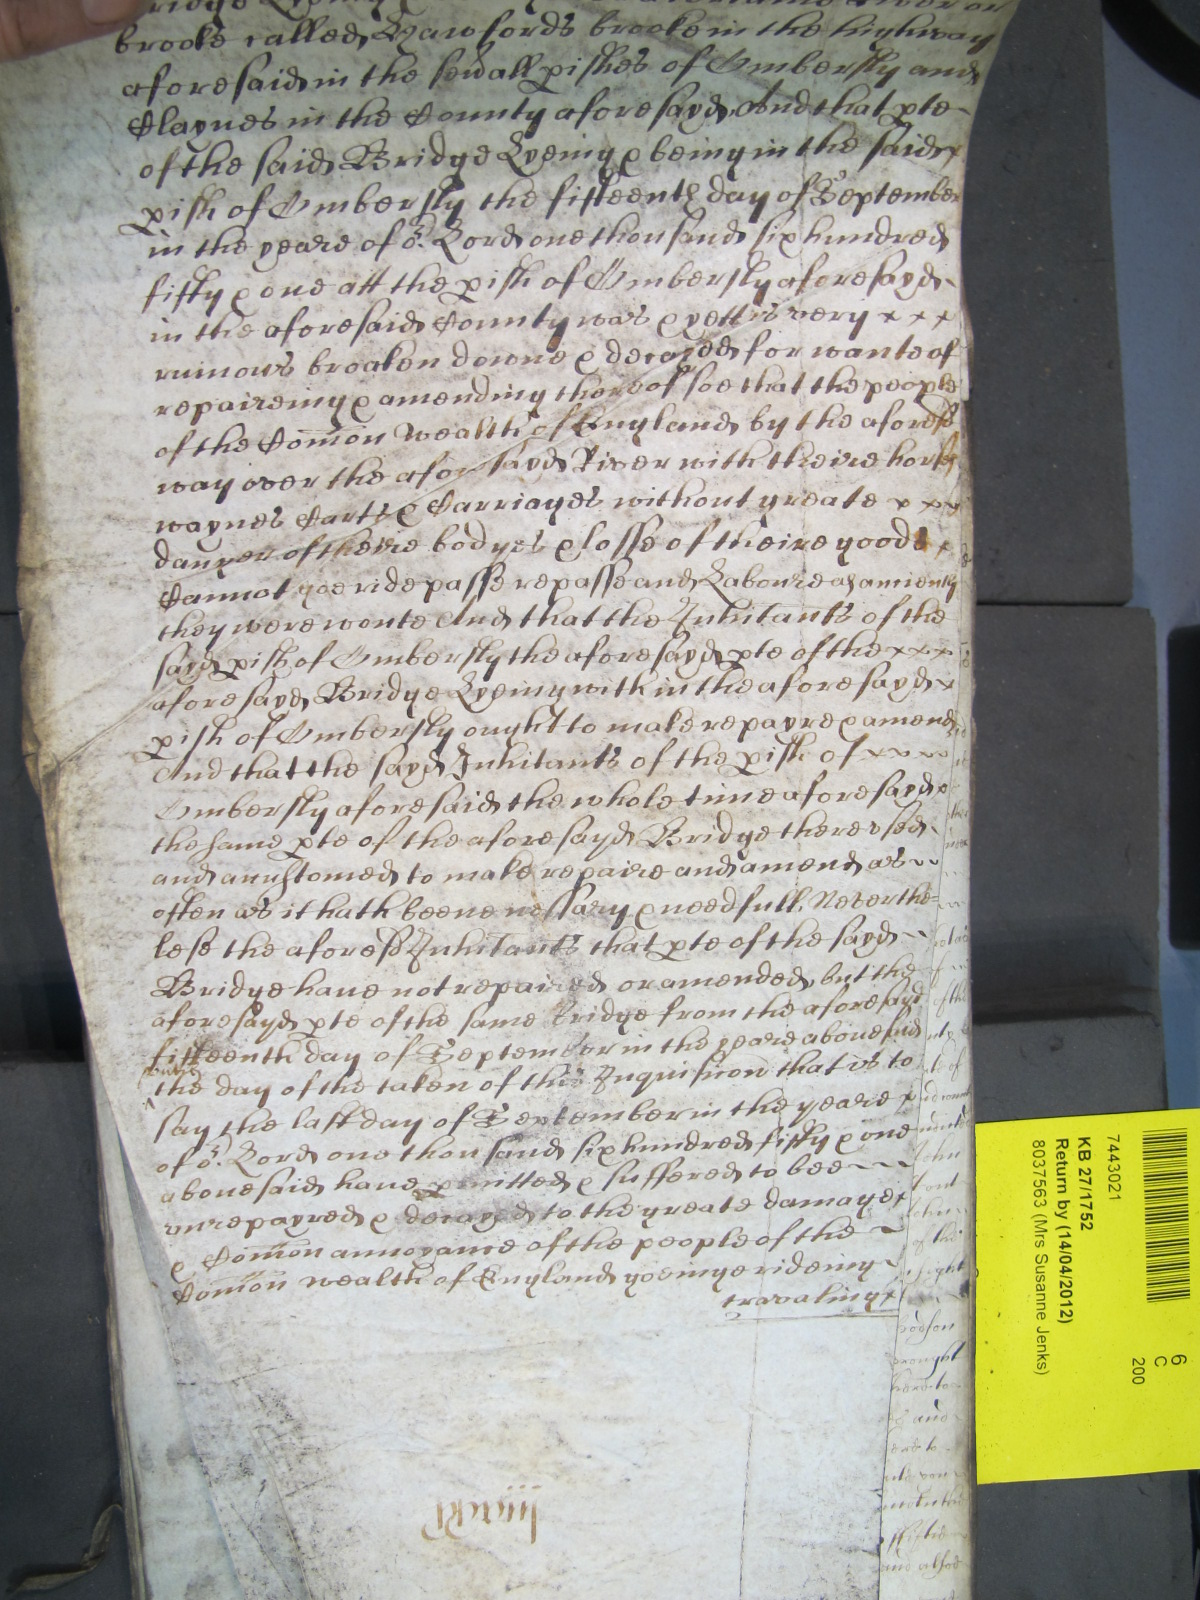 Bridge Lyeing
brooke called Hawfords brooke in the highway
aforesaid in the sev'all p'ishes of Ombersly and
Claynes in the County aforesayd And that p'te
of the said Bridge Lyeing & being in the said x
p'ish of Ombersly the fifteenth day of September
in the yeare of o'r Lord one thousand six hundred
fifty & one att the p'ish of Ombersly aforesayd
in the aforesaid County was & yett is very x x x
ruinous broaken downe & decayed for wante of
repaireing & amending thereof soe that the people
of the Com̄on Wealth of England by the aforesd
way over the aforesayd River with theire horses
waynes Carts & Carriages without greate x x x
daunger of theire bodyes & losse of theire goods x
Cannot goe ride passe repasse and Laboure as anciently
they were wonte And that the Inhitants of the
sayd p'ish of Ombersly the aforesayd p'te of the x x x
aforesayd Bridge Lyeing with in the aforesayd x
p'ish of Ombersly ought to make repayre & amend
And that the sayd Inhitants of the p'ish of x x x x
Ombersly aforesaid the whole time aforesayd
the same p'te of the aforesayd Bridge there used
and accustomed to make repaire and amend as
often as it hath beene nessary & needfull, Neverthe=
less the aforesd Inhitants that p'te of the sayd
Bridge have not repaired or amended, but the
aforesayd p'te of the same Bridge from the aforesayd
fifteenth day of September in the yeare abovesaid
untill
the day of the taken of this Inquisicon that is to
say the last day of September in the yeare x
of o'r Lord one thousand six hundred fifty & one
abovesaid have p'mitted & suffered to bee
unrepayred & decayed to the greate damage x
& Com̄on annoyance of the people of the
Com̄on wealth of England goeinge rideing
travaling x
7443021
KB 27/1752
Return by (14/04/2012)
8037563 (Mrs Susanne Jenks)
6
C
200